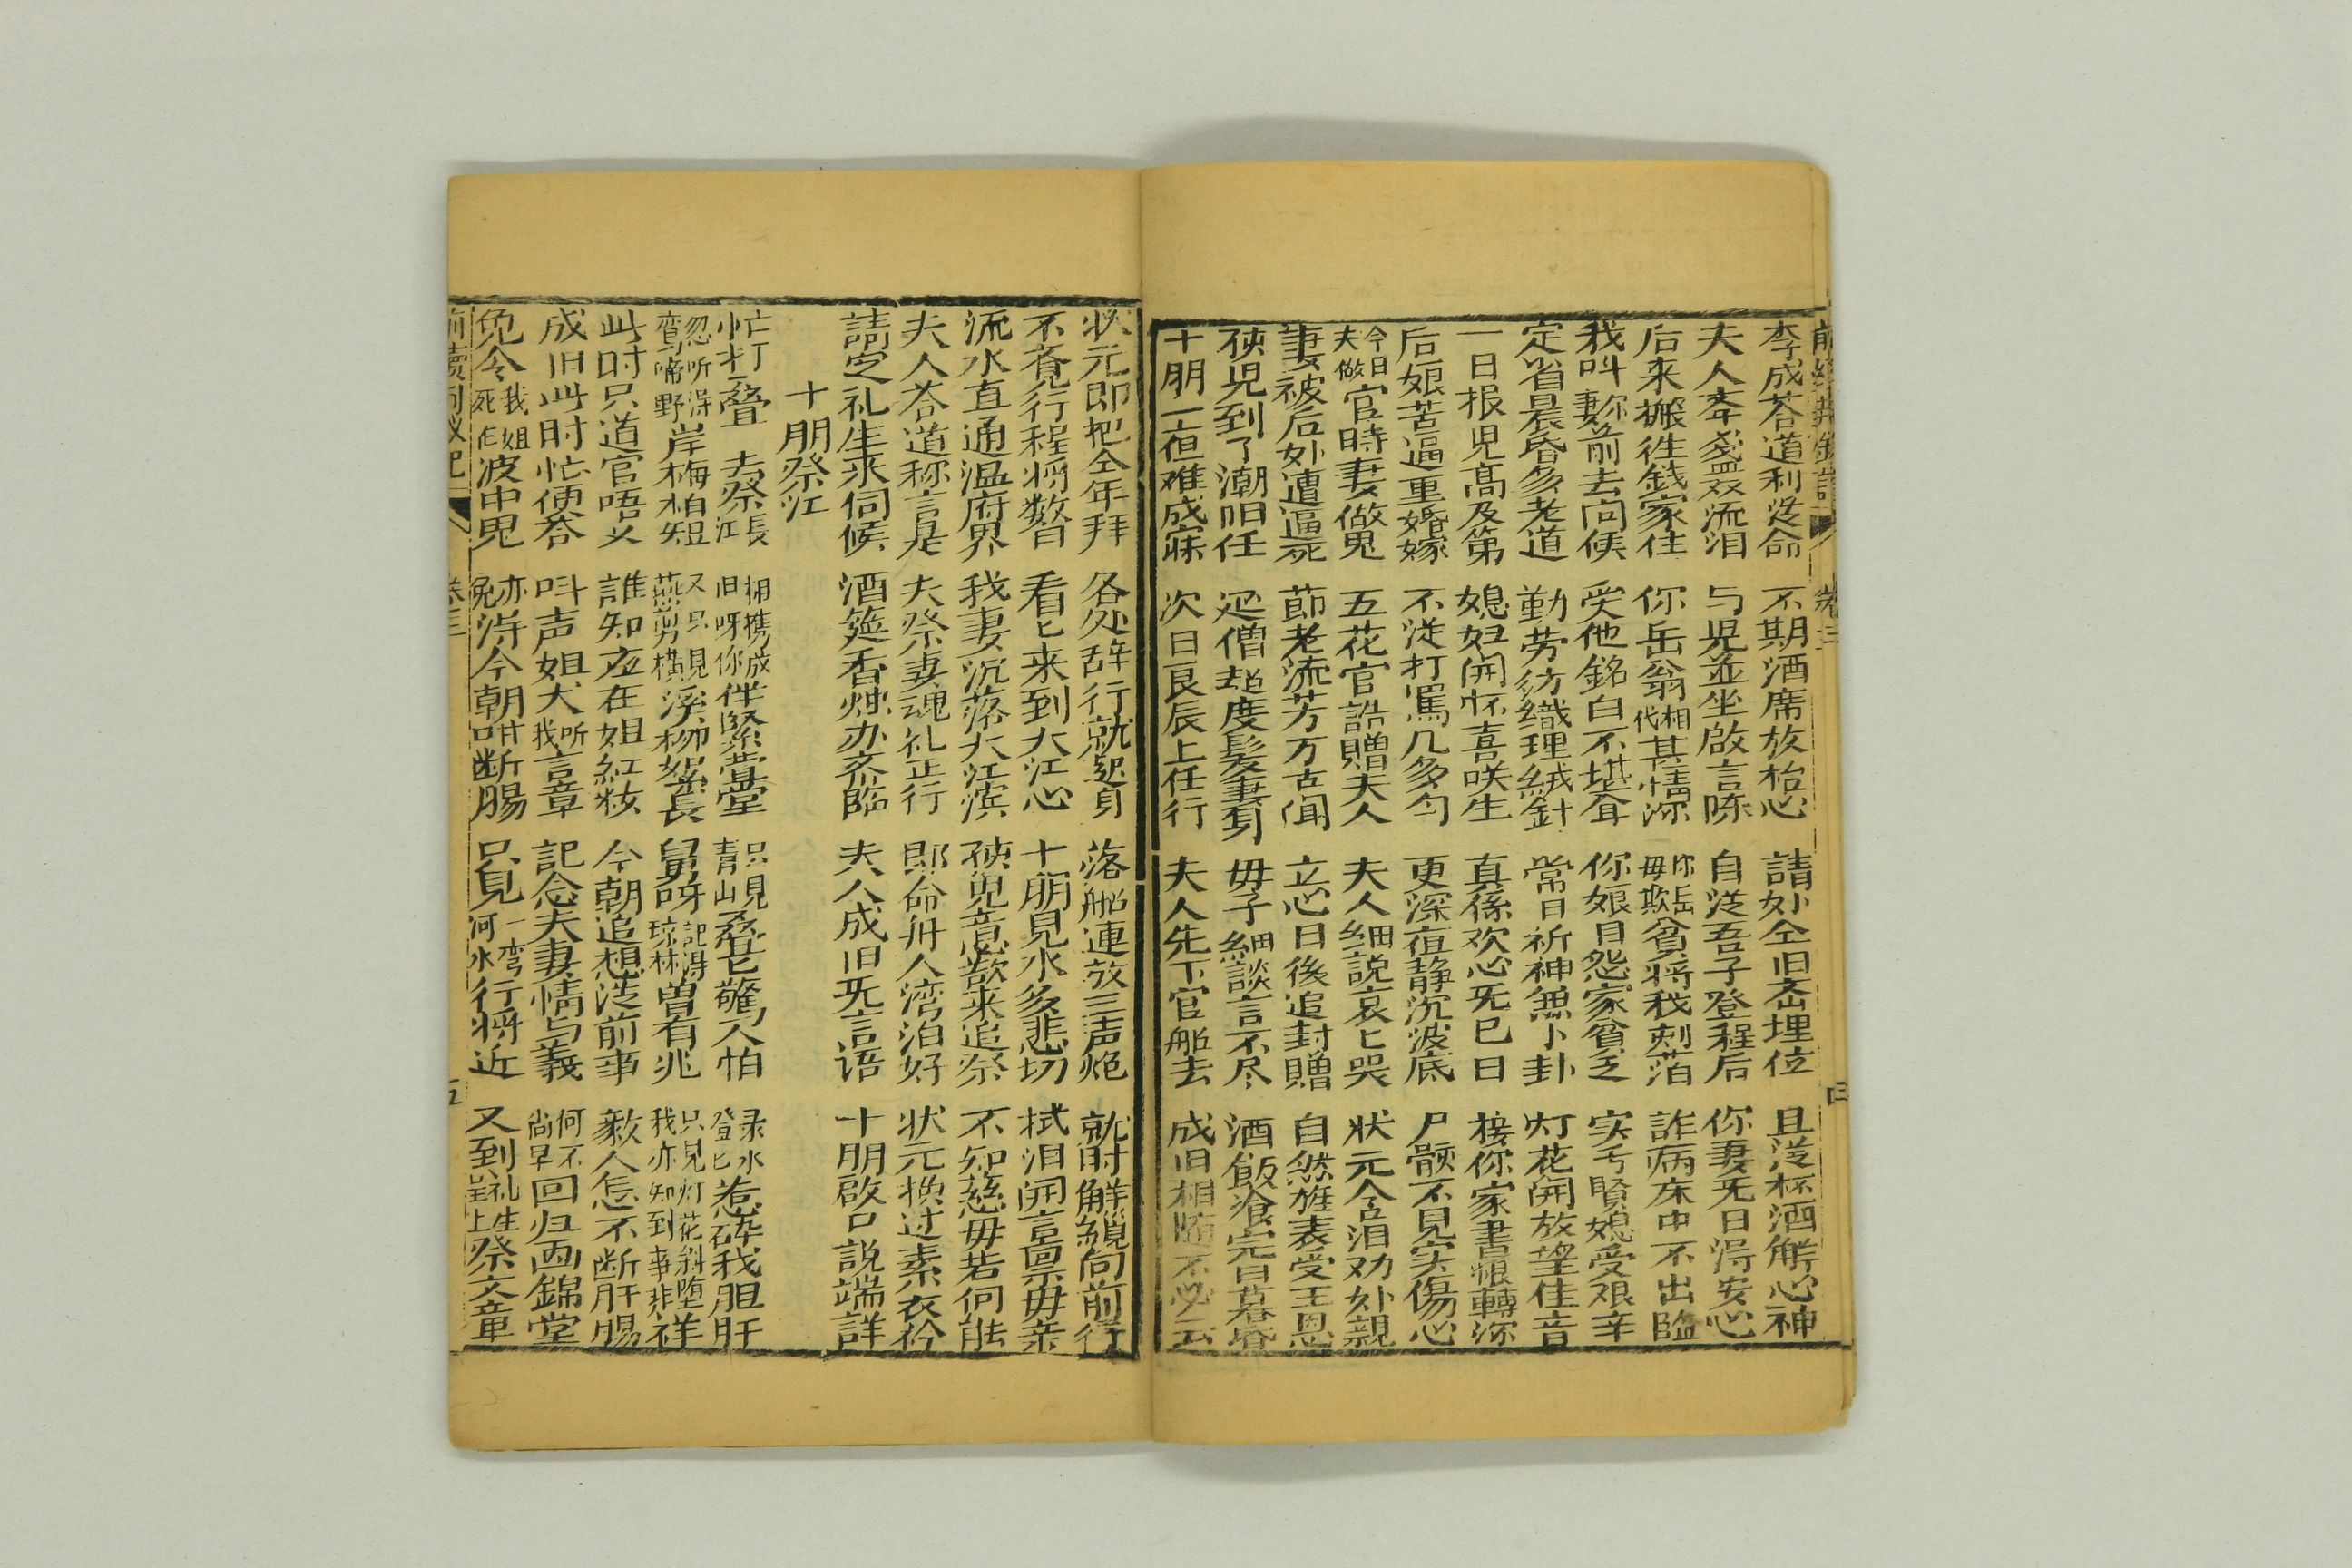 李成荅道利從命 不期酒席放枱心 請妙仝旧㐫埋位 且從杯酒觧心神
夫人奉盞双流泪 与児並坐啟言陈 自從吾子登程后 你妻无日淂安心
后来搬徃錢家住 你岳翁相代其情深 你岳毋欺貧將我刺萡 詐病床中不出臨
我叫妳妻前去问候 受他銘白不堪耷 你娘日怨家貧乏 实亏賢媳受艰辛
定省晨昏多老道 勤劳纺織理絨針 常日祈神無卜卦 灯花開放望佳音
一日报児高及第 媳妇開怀喜咲生 真係欢心无已日 接你家書恨轉深
后娘苦逼重婚嫁 不從打罵几多匀 更深夜静沉波底 尸骸不見实傷心
今日夫做官時妻做鬼 五花官誥贈夫人 夫人細説哀匕哭 状元含泪劝外親
妻被后外遭逼死 節老流芳万古闻 立心日後追封贈 自然旌表受王恩
使児到了潮阳任 延僧超度髪妻身 毋子細談言不尽 酒飯飡完日暮昏
十朋一但难成寐 次日良辰上任行 夫人先下官船去 成旧相随不必云
状元即把仝年拜 各处辞行就起身 落船連放三声炮 就时觧纜向前行
不覚行程将数日 看匕来到大江心 十朋見水多悲切 拭泪開言禀毋亲
流水直通温府界 我妻沉落大江濱 孩児意欲来追祭 不知慈毋若何能
夫人荅道称言是 夫祭妻魂礼正行 即命舟人湾泊好 状元換过素衣衿
請定礼生来伺候 酒筵香烛办齐臨 夫人成旧无言语 十朋啟口説端詳
十朋祭江
忙打叠 去祭長江 拥携成旧呀你伴緊萱堂 只見青山叠匕驚人怕 录水登匕惹碎我胆肝
忽听淂鸾啼野岸梅相短 又只見燕剪横溪柳絮長 舅呀記淂琼林曽有兆 只見灯花斜堕我亦知到事非祥
此时只道官唔乂 誰知应在姐紅粧 今朝追想從前事 教人怎不断肝腸
成旧此时忙便荅 呌声姐丈听我言章 記念夫妻情与義 何不尚早回归画錦堂
免令我姐死在波中鬼 亦免淂今朝咁断腸 只見一弯河水行將近 又到礼生呈上祭文章
卷三
五